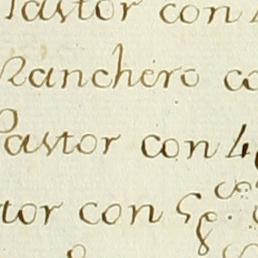 Pastor con
Ranchero co
Pastor con 4
tor con 58.